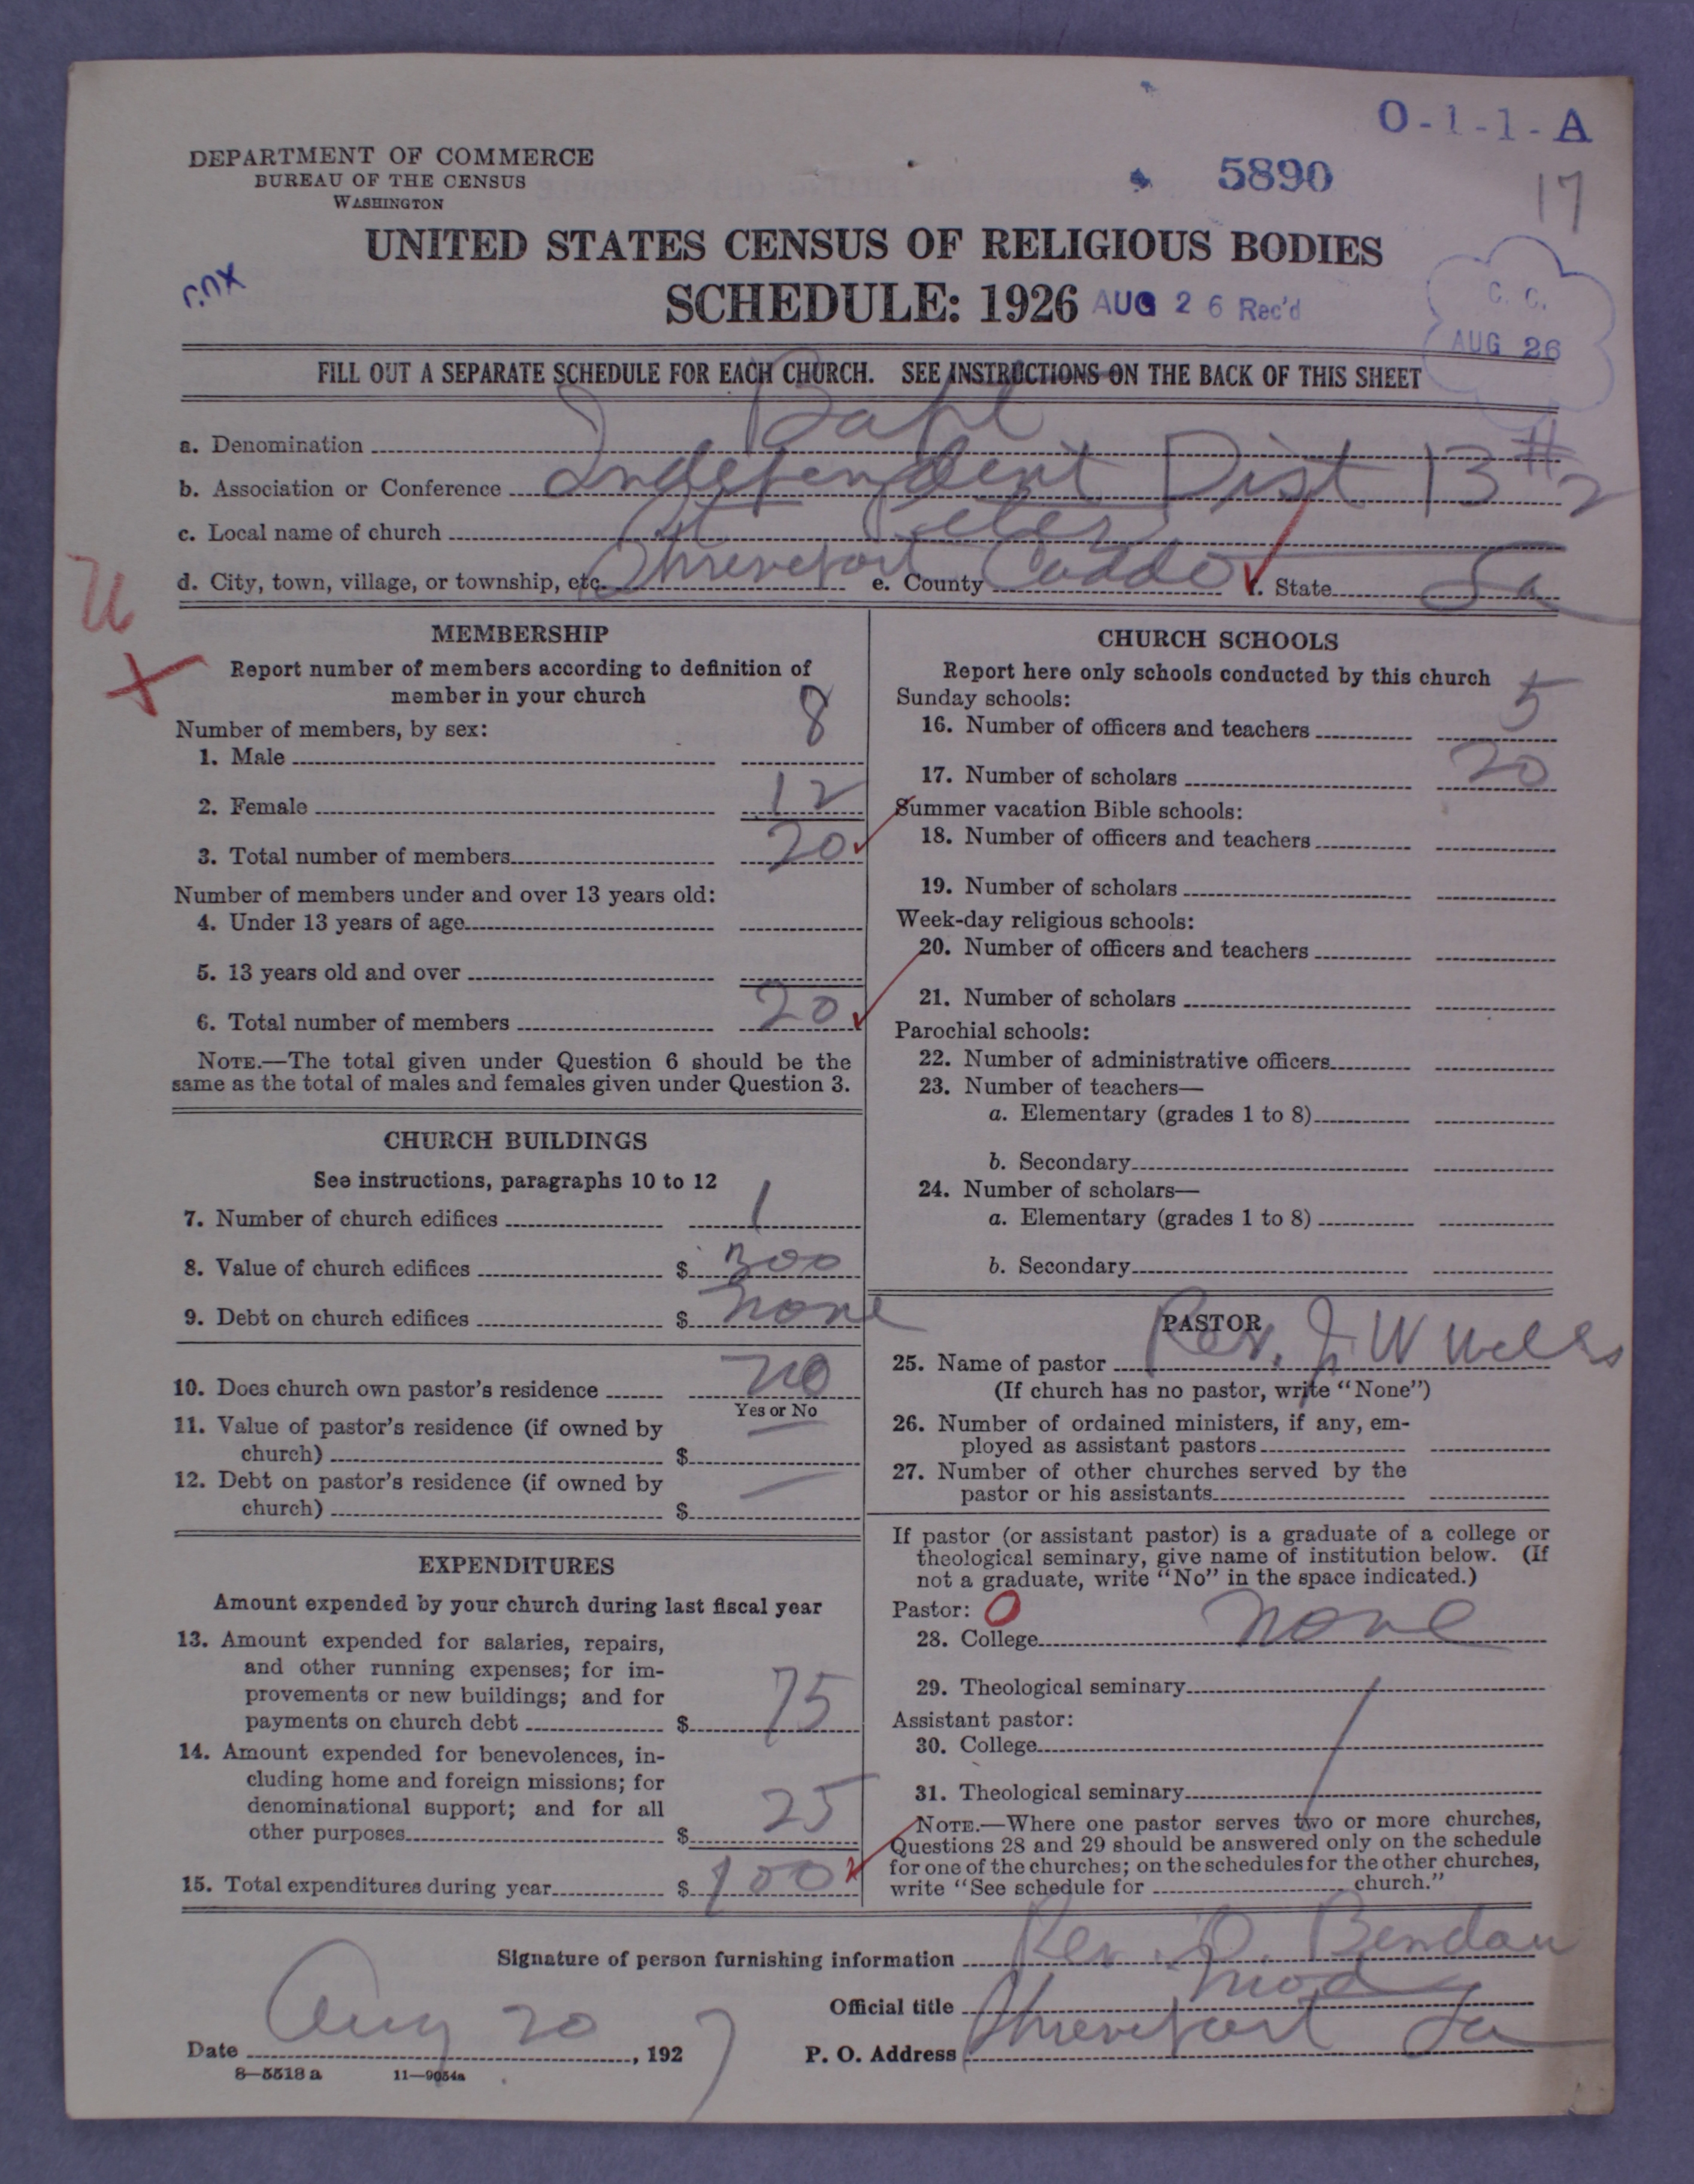 O-1-1-A
DEPARTMENT OF COMMERCE
BUREAU OF THE CENSUS
WASHINGTON
5890
17
UNITED STATES CENSUS OF RELIGIOUS BODIES
SCHEDULE: 1926 AUG 26 Rec'd
C. C.
AUG 26
FILL OUT A SEPARATE SCHEDULE FOR EACH CHURCH. SEE INSTRUCTIONS ON THE BACK OF THIS SHEET
a. Denomination Bapt
b. Association or Conference Independent Dist 13 #2
c. Local name of church St Peter
d. City, town, village, or township, etc. Shreveport e. County Caddo f. State La
MEMBERSHIP
Report number of members according to definition of
member in your church
Number of members, by sex:
1. Male 8
2. Female 12
3. Total number of members 20
Number of members under and over 13 years old:
4. Under 13 years of age
5. 13 years old and over
6. Total number of members 20
NOTE.—The total given under Question 6 should be the
same as the total of males and females given under Question 3.
CHURCH BUILDINGS
See instructions, paragraphs 10 to 12
7. Number of church edifices 1
8. Value of church edifices $ 300
9. Debt on church edifices $ none
10. Does church own pastor's residence no
Yes or No
11. Value of pastor's residence (if owned by
church) $ —
12. Debt on pastor's residence (if owned by
church) $ —
EXPENDITURES
Amount expended by your church during last fiscal year
13. Amount expended for salaries, repairs,
and other running expenses; for im-
provements or new buildings; and for
payments on church debt $ 75
14. Amount expended for benevolences, in-
cluding home and foreign missions; for
denominational support; and for all
other purposes $ 25
15. Total expenditures during year $ 100
CHURCH SCHOOLS
Report here only schools conducted by this church
Sunday schools:
16. Number of officers and teachers 5
17. Number of scholars 20
Summer vacation Bible schools:
18. Number of officers and teachers
19. Number of scholars
Week-day religious schools:
20. Number of officers and teachers
21. Number of scholars
Parochial schools:
22. Number of administrative officers
23. Number of teachers—
a. Elementary (grades 1 to 8)
b. Secondary
24. Number of scholars—
a. Elementary (grades 1 to 8)
b. Secondary
PASTOR
25. Name of pastor Rev. J. W Wells
(If church has no pastor, write "None")
26. Number of ordained ministers, if any, em-
ployed as assistant pastors
27. Number of other churches served by the
pastor or his assistants
If pastor (or assistant pastor) is a graduate of a college or
theological seminary, give name of institution below. (If
not a graduate, write "No" in the space indicated.)
Pastor: O
28. College none
29. Theological seminary
Assistant pastor:
30. College
31. Theological seminary
NOTE.—Where one pastor serves two or more churches,
Questions 28 and 29 should be answered only on the schedule
for one of the churches; on the schedules for the other churches,
write "See schedule for church."
Signature of person furnishing information Rev. D. Bendau
Official title Mod
Date Aug 20, 1927 P. O. Address Shreveport La
8—5518a 11—9054a